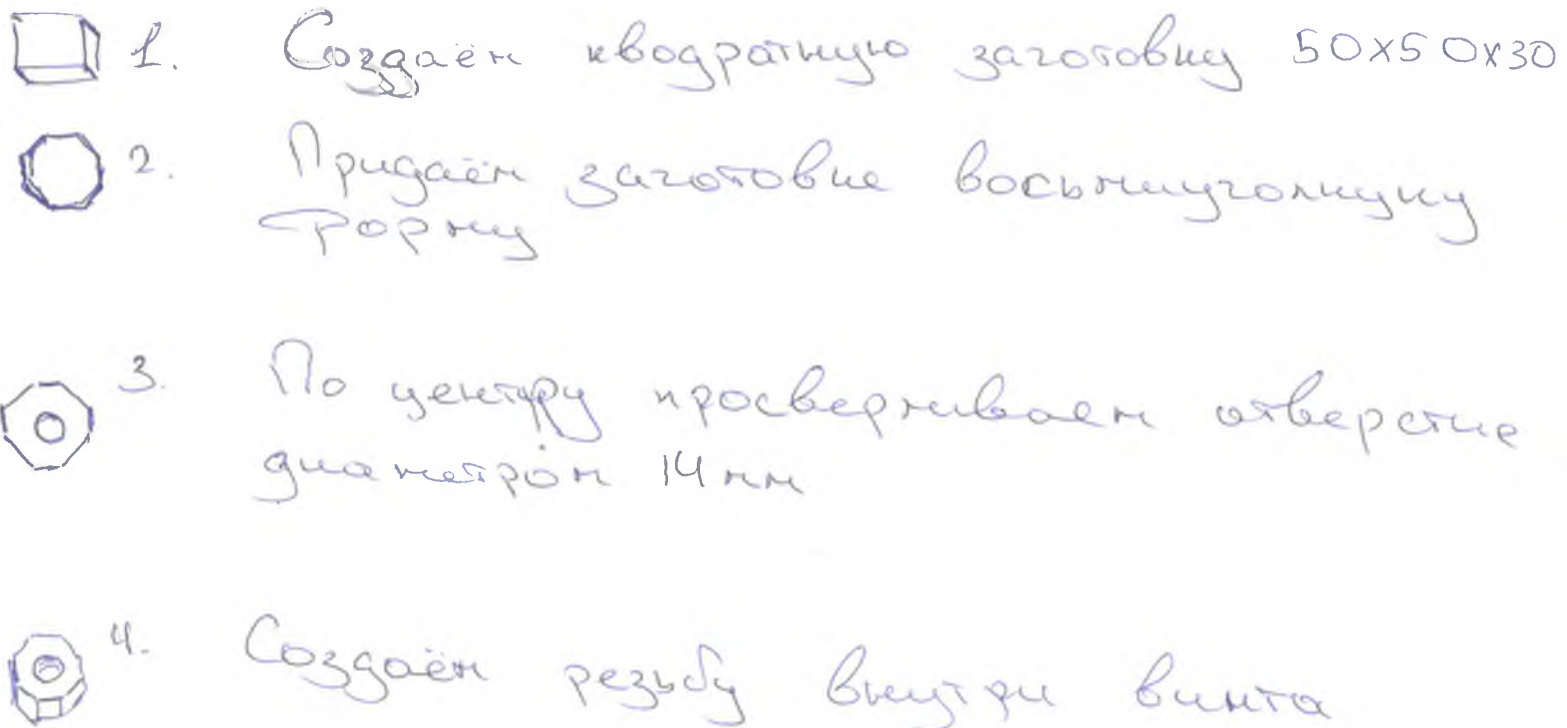 1. Создаём кводратную заготовку 50х50х30
2. Придаём заготовке восьмиуголнуну
форму
3. По центру просверливаем отверстие
диаметром 14 мм
4. Создаём резьбу внутри винта